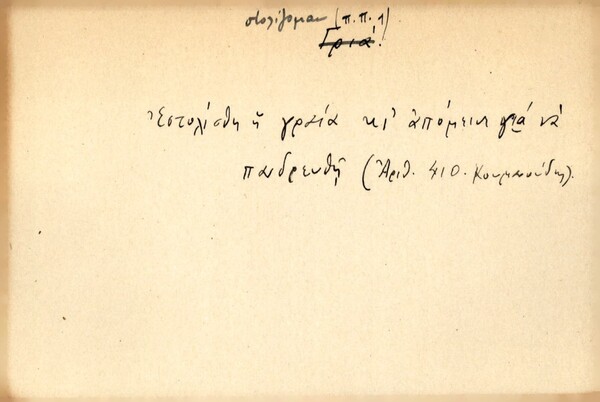 στολίζομαι (π.π. 1)
Γριά.
Ἐστολίσθη ἡ γραία κι' ἀπόμεινε γιά νά
πανδρευθῇ (Ἀριθ. 410. Κουμανούδης).